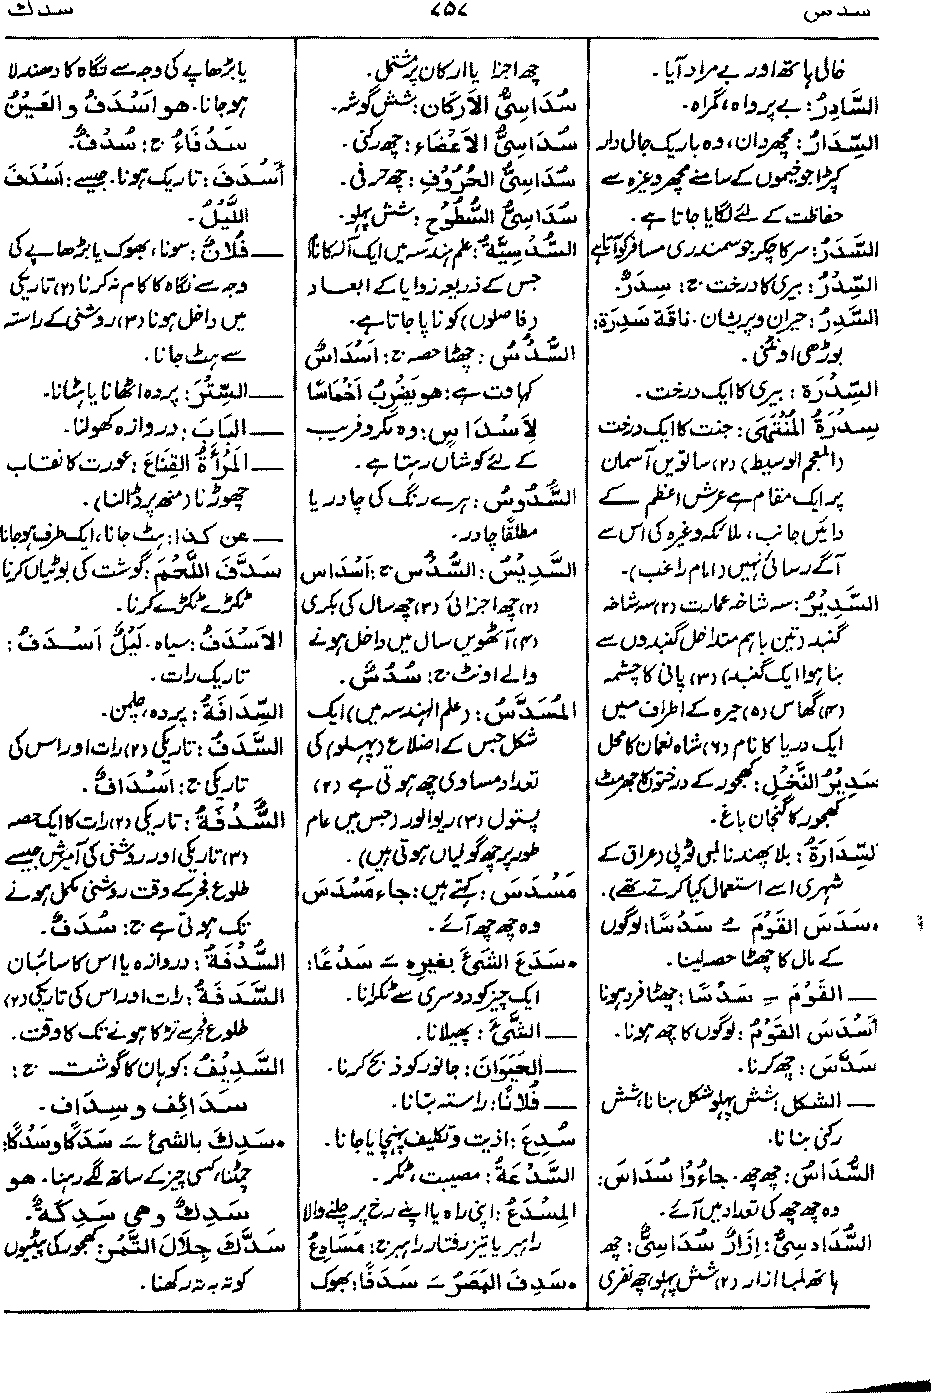 سدس
۷۵۷
سدك
خالی ہاتھ اور بے مراد آیا۔
السَّادِرُ: بے پرواہ، گمراہ۔
السِّدَارُ: مچھردان، وہ باریک جالی دار
کپڑا جو خیموں کے سامنے مچھر وغیرہ سے
حفاظت کے لئے لگایا جاتا ہے۔
السَّدَرُ: سر کا چکر جو سمندری مسافر کو آتا ہے
السِّدْرُ: بیری کا درخت ج: سِدَرٌ۔
السَّدِرُ: حیران و پریشان۔ ناقة سَدِرَة:
بوڑھی اونٹنی۔
السِّدْرَة: بیری کا ایک درخت۔
سِدْرَةُ المُنْتَهَى: جنت کا ایک درخت
(المعجم الوسیط) (۲) ساتویں آسمان
پر ایک مقام ہے عرش اعظم کے
دائیں جانب، ملائکہ وغیرہ کی اس سے
آگے رسائی نہیں (امام راغب)۔
السَّدِيْرُ: سہ شاخہ عمارت (۲) سہ شاخہ
گنبد (تین باہم متداخل گنبدوں سے
بنا ہوا ایک گنبد) (۳) پانی کا چشمہ
(۴) گھاس (۵) حیرہ کے اطراف میں
ایک دریا کا نام (۶) شاہ نعمان کا محل
سَدِيْرُ النَّخْلِ: کھجور کے درختوں کا جھرمٹ
کھجور کا گنجان باغ۔
السِّدَارَةُ: بلا پھندنا لمبی ٹوپی (عراق کے
شہری اسے استعمال کیا کرتے تھے)۔
• سَدَسَ القَوْمَ ـُ سَدْسًا: لوگوں
کے مال کا چھٹا حصہ لینا۔
— القَوْمَ ـِ سَدْسًا: چھٹا فرد ہونا
أَسْدَسَ القَوْمُ: لوگوں کا چھ ہونا۔
سَدَّسَ: چھ کرنا۔
— الشكل: شش پہلو شکل بنانا، شش
رکنی بنانا۔
السُّدَاسُ: چھ چھ۔ جاءُوا سُدَاسَ:
وہ چھ چھ کی تعداد میں آئے۔
السُّدَاسِيُّ: إزَارٌ سُدَاسِيٌّ: چھ
ہاتھ لمبا ازار (۲) شش پہلو، چھ نفری
چھ اجزا یا ارکان پر مشتمل۔
سُدَاسِيُّ الأركان: شش گوشہ۔
سُدَاسِيُّ الأعْضاء: چھ رکنی۔
سُدَاسِيُّ الحُرُوْفِ: چھ حرفی۔
سُدَاسِيُّ السُّطُوْحِ: شش پہلو۔
السُّدْسِيَّةُ: علم ہندسہ میں ایک آلہ کا نام
جس کے ذریعہ زوایا کے ابعاد
(فاصلوں) کو ناپا جاتا ہے۔
السُّدُسُ: چھٹا حصہ ج: أسْدَاسٌ
کہاوت ہے: هو يَضْرِبُ أخْمَاسًا
لِأَسْدَاسٍ: وہ مکر و فریب
کے لئے کوشاں رہتا ہے۔
السُّدُوْسُ: ہرے رنگ کی چادر یا
مطلقًا چادر۔
السَّدِيْسُ: السُّدُس ج: أسْدَاس
(۲) چھ اجزائی (۳) چھ سال کی بکری
(۴) آٹھویں سال میں داخل ہونے
والے اونٹ ج: سُدُسٌ۔
المُسَدَّسُ: (علم الہندسہ میں) ایک
شکل جس کے اضلاع (پہلو) کی
تعداد مساوی چھ ہوتی ہے (۲)
پستول (۳) ریوالور (جس میں عام
طور پر چھ گولیاں ہوتی ہیں)۔
مَسْدَسَ: کہتے ہیں: جاء مَسْدَسَ
وہ چھ چھ آئے۔
• سَدَعَ الشَّيْءَ بغيره ـَ سَدْعًا:
ایک چیز کو دوسری سے ٹکرانا۔
— الشَّيْءَ: پھیلانا۔
— الحَيَوَانَ: جانور کو ذبح کرنا۔
— فُلَانًا: راستہ بتانا۔
سُدِعَ: اذیت و تکلیف پہنچایا جانا۔
السَّدْعَةُ: مصیبت، ٹکر۔
المِسْدَعُ: اپنی راہ یا اپنے رخ پر چلنے والا
راہبر یا تیز رفتار راہبر ج: مَسَادِعُ
• سَدِفَ البَصَرُ ـَ سَدَفًا: بھوک
یا بڑھاپے کی وجہ سے نگاہ کا دھندلا
ہو جانا۔ هو أسْدَفُ والعَيْنُ
سَدْفَاءُ ج: سُدْفٌ۔
أَسْدَفَ: تاریک ہونا۔ جیسے: أسْدَفَ
اللَّيْلُ۔
— فُلَانٌ: سونا، بھوک یا بڑھاپے کی
وجہ سے نگاہ کا کام نہ کرنا (۲) تاریکی
میں داخل ہونا (۳) روشنی کے راستہ
سے ہٹ جانا۔
— السِّتْرَ: پردہ اٹھانا یا ہٹانا۔
— البَابَ: دروازہ کھولنا۔
— المَرْأَةُ القِنَاعَ: عورت کا نقاب
چھوڑنا (منھ پر ڈالنا)۔
— عن كذا: ہٹ جانا، ایک طرف ہو جانا
سَدَّفَ اللَّحْمَ: گوشت کی بوٹیاں کرنا
ٹکڑے ٹکڑے کرنا۔
الأَسْدَفُ: سیاہ۔ لَيْلٌ أسْدَفُ:
تاریک رات۔
السِّدَافَةُ: پردہ، چلمن۔
السَّدَفُ: تاریکی (۲) رات اور اس کی
تاریکی ج: أسْدَافٌ۔
السُّدْفَةُ: تاریکی (۲) رات کا ایک حصہ
(۳) تاریکی اور روشنی کی آمیزش جیسے
طلوع فجر کے وقت روشنی مکمل ہونے
تک ہوتی ہے ج: سُدَفٌ۔
السُّدْفَةُ: دروازہ یا اس کا سائبان
السَّدَفَةُ: رات اور اس کی تاریکی (۲)
طلوع فجر سے تڑکا ہونے تک کا وقت۔
السَّدِيْفُ: کوہان کا گوشت ج:
سَدَائِف و سِدَاف۔
• سَدِكَ بالشئ ـَ سَدَكًا وسَدْكًا:
چمٹنا، کسی چیز کے ساتھ لگے رہنا۔ هو
سَدِكٌ وهي سَدِكَةٌ۔
سَدَّكَ جِلَالَ التَّمْرِ: کھجور کی پیٹیوں
کو تہ بہ تہ رکھنا۔